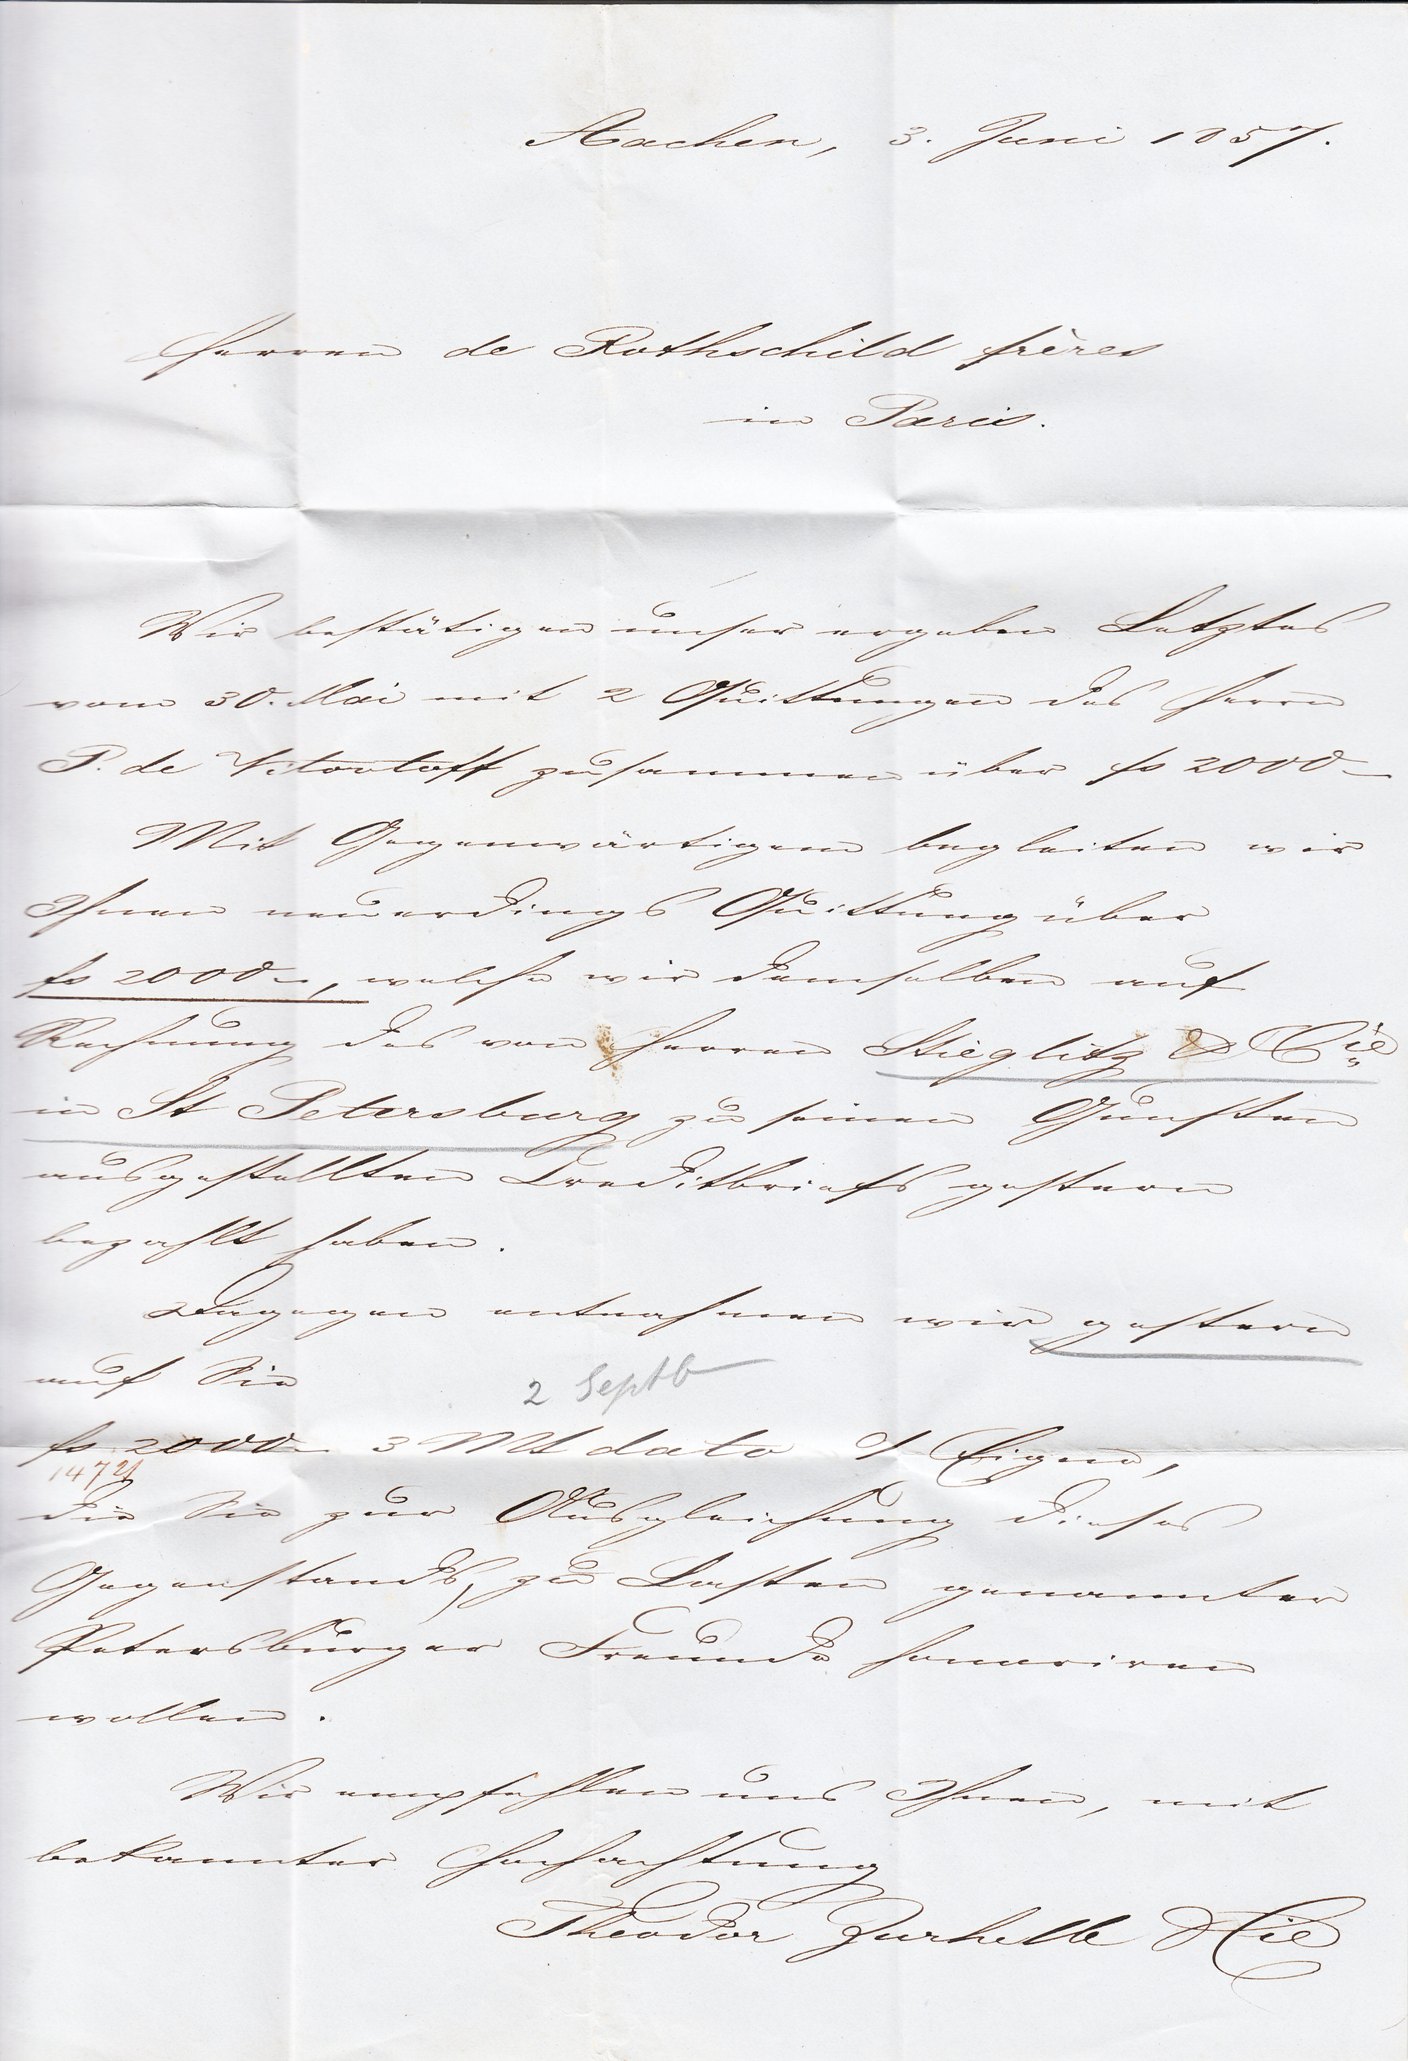 Aachen, 3. Juni 1857.
Herren de Rothschild frères
in Paris.
Wir bestätigen unser ergeben Letztes
vom 30. Mai mit 2 Quittungen des Herrn
P. de zusammen über fs 2000–
Mit Gegenwärtigem begleiten wir
Ihnen neuerdings Quittung über
fs 2000–, welche wir demselben auf
Rechnung des von Herren Stieglitz & Cie
in St Petersburg zu seinen Gunsten
ausgestellten Creditbriefs gestern
bezahlt haben.
Dagegen entnahmen wir gestern
auf Sie
2 Septb
fs 2000– 3 Mt dato o/ Eigene,
1472
die Sie zur Ausgleichung dieses
Gegenstands, zu Lasten genannter
Petersburger Freunde honoriren
wollen.
Wir empfehlen uns Ihnen, mit
bekannter Hochachtung
Theodor Zurhelle & Cie